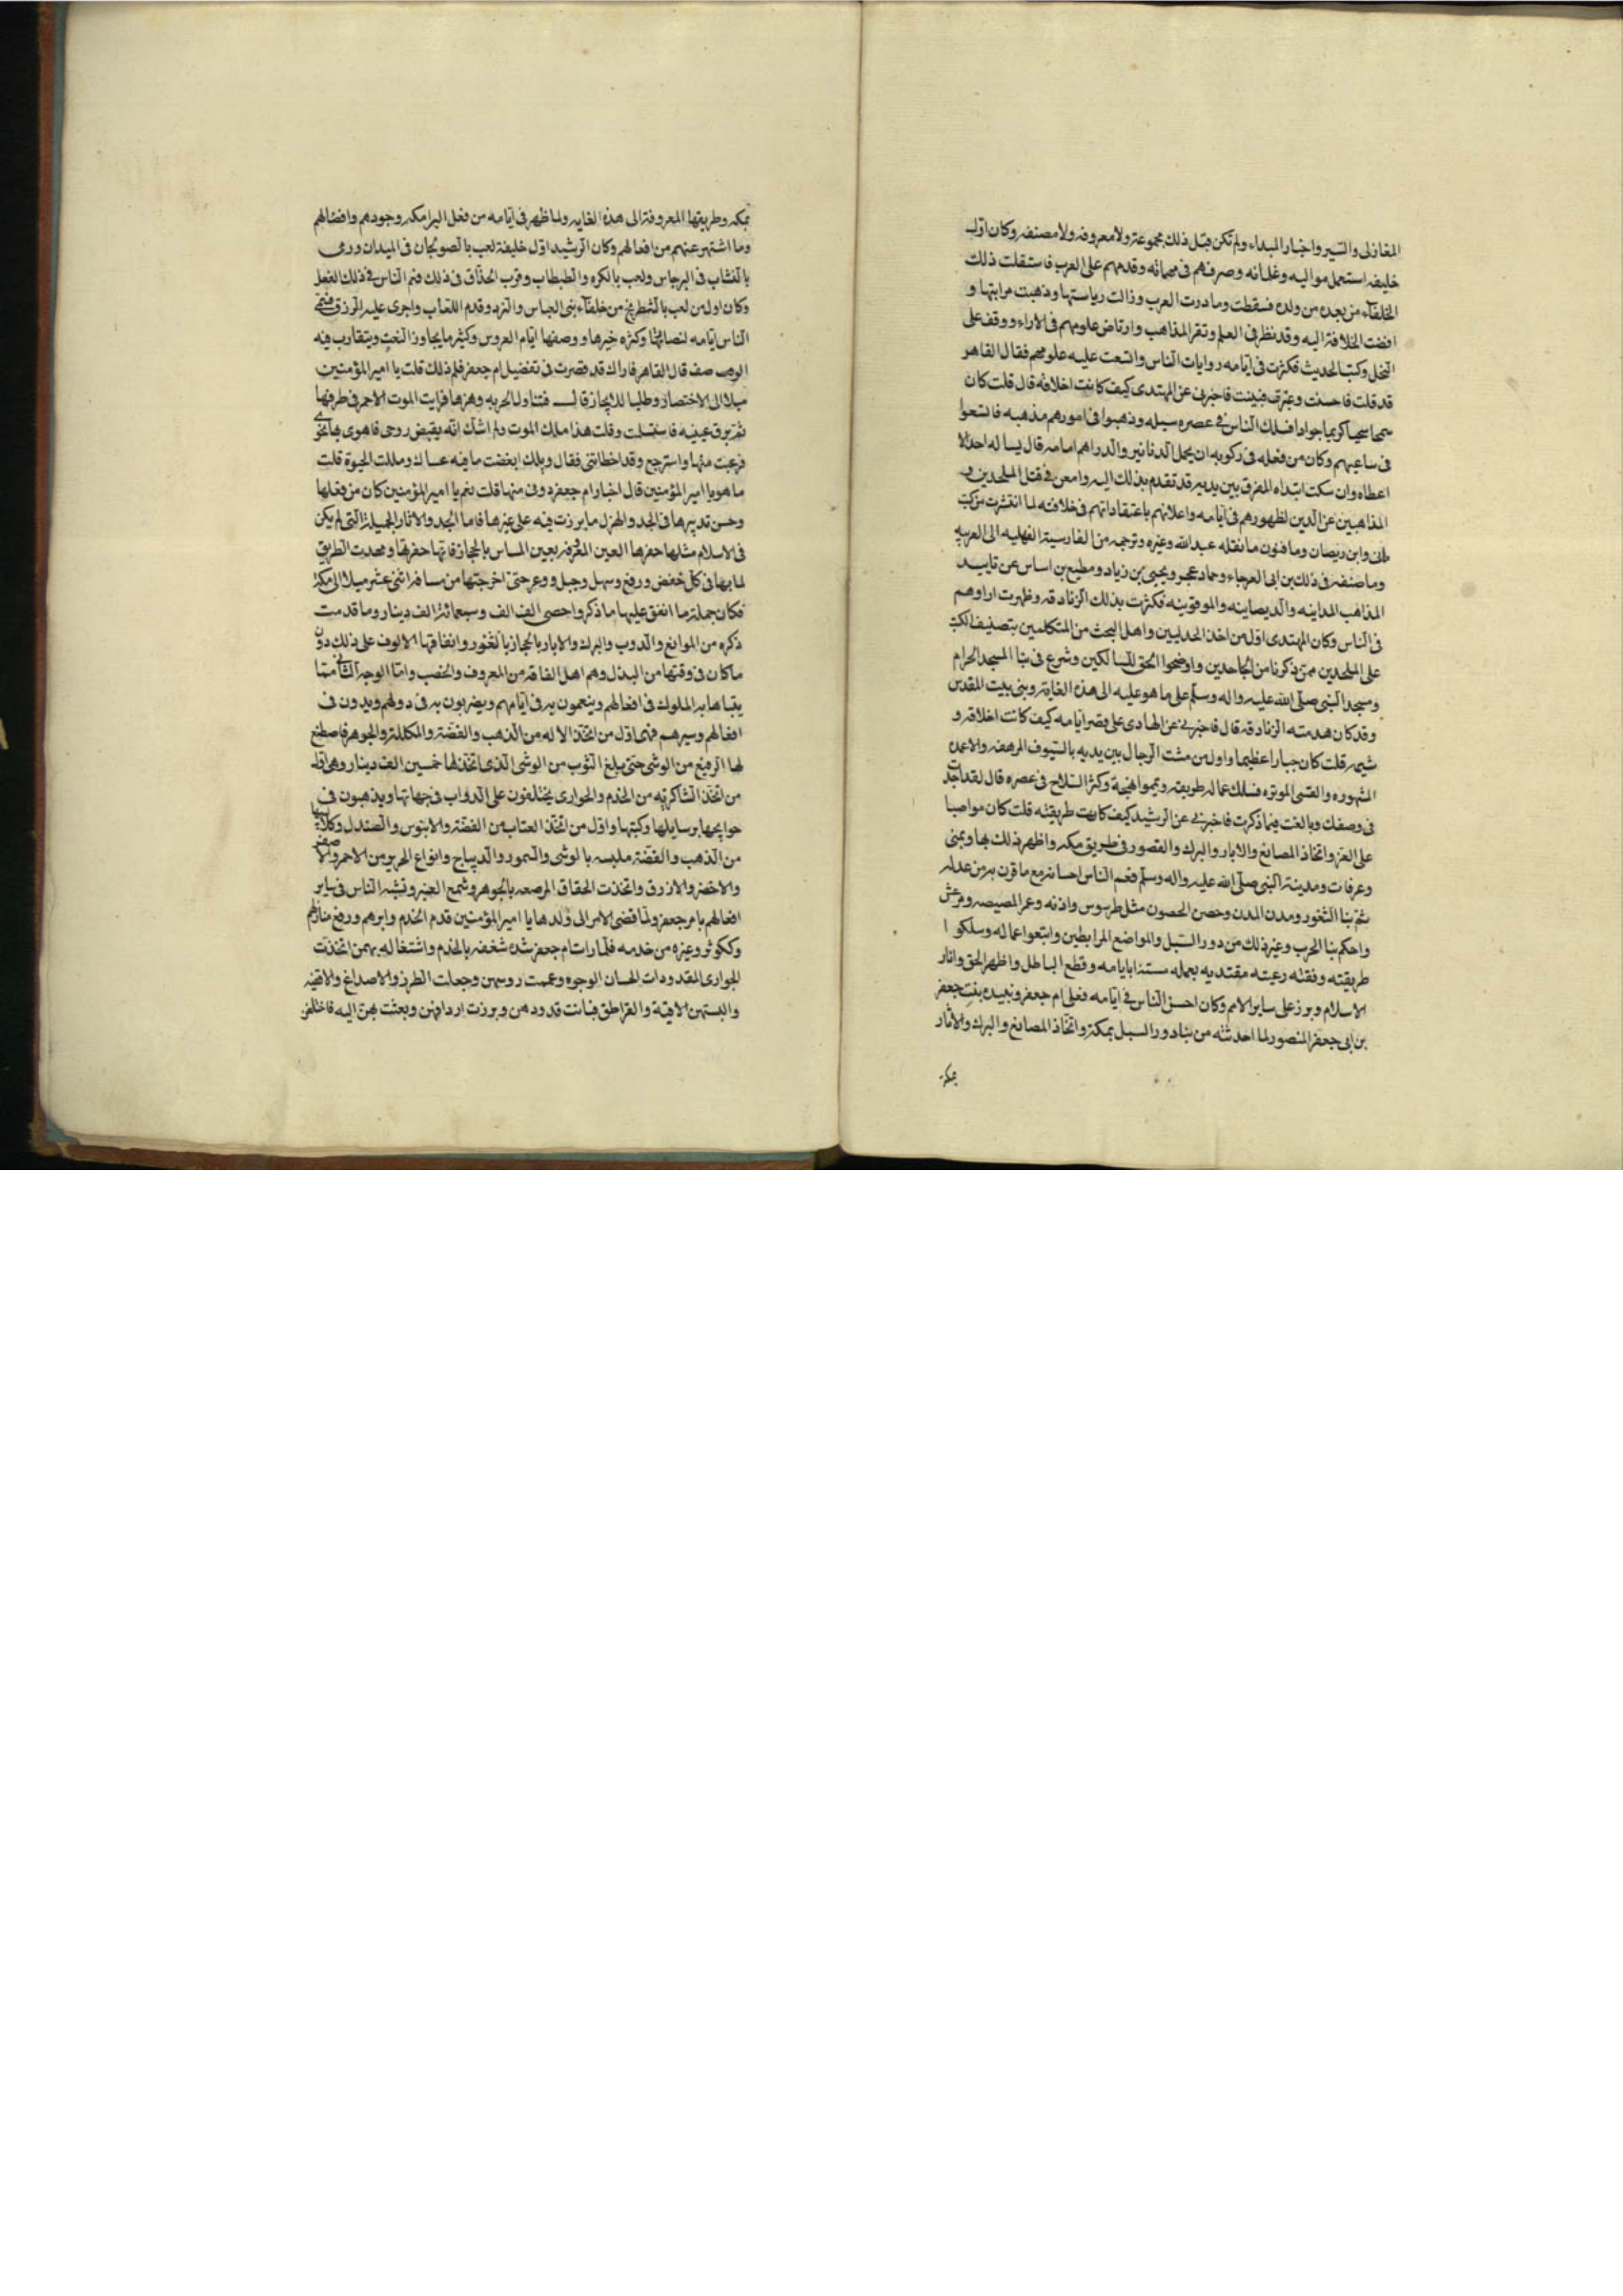 المغازى والسير واخبار المبداء ولم تكن قبل ذلك مجموعة ولا معروفه ولا مصنفه وكان اول
خليفه استعمل مواليه وغلمانه وصرفهم فى مهماته وقدمهم على العرب فاستقلت ذلك
الخلفاء من بعده من ولده فسقطت ومادرت العرب وزالت رياستها وذهبت مراتبها و
افضت الخلافة اليه وقد نظر فى العلم وتقر المذاهب وارتاض علومهم فى الاراء ووقف على
النحل وكتب الحديث فكثرت فى ايامه روايات الناس واتسعت عليه علومهم فقال القاهر
قد قلت فاحسنت وعبرت فبينت فاخبرنى عن المهتدى كيف كانت اخلاقه قال قلت كان
سمحا سخيا كريما جوادا فسلك الناس فى عصره سبيله وذهبوا فى امورهم مذهبه فاتسعوا
فى ساعيهم وكان من فعله فى ركوبه ان يحمل الدنانير والدراهم امامه قال يساله احد الا
اعطاه وان سكت ابتداه المفرق بين يديه قد تقدم بذلك اليه وامعن فى قتل الملحدين و
المذاهبين عن الدين لظهورهم فى ايامه واعلانهم باعتقاداتهم فى خلافته لما انتشرت من كتب
مانى وابن ريصان ومافنون ما نقله عبد الله وغيره وترجمه من الفارسية الفهليه الى العربيه
وما صنفه فى ذلك بن ابى العرجاء وحماد عجر ويحيى بن زياد ومطيع بن اساس عن تاييد
المذاهب المداينه والديصاينه والموقوينه فكثرت بذلك الزنادقه وظهرت اراوهم
فى الناس وكان المهتدى اول من اخذ الجدليين واهل البحث من المتكلمين بتصنيف الكتب
على الملحدين ممن ذكرنا من الجاحدين واوضحوا الحق للسالكين وشرع فى بنا المسجد الحرام
ومسجد النبى صلى الله عليه واله وسلم على ما هو عليه الى هذه الغاية وبنى بيت المقدس
وقد كان هدمته الزنادقه قال فاخبرنى عن الهادى على قصر ايامه كيف كانت اخلاقه و
شيمه قلت كان جبارا عظيما واول من مشت الرجال بين يديه بالسيوف المرهفه والاعمده
المشهوره والقسى الموتره فسلك عماله طريقته ويمموا نهجة وكثر السلاح فى عصره قال لقد اجدت
فى وصفك وبالغت فيما ذكرت فاخبرنى عن الرشيد كيف كانت طريقته قلت كان مواصبا
على الغزو اتخاذ المصانع والابار والبرك والقصور فى طريق مكه واظهر ذلك بها وبمنى
وعرفات ومدينة النبى صلى الله عليه واله وسلم فعم الناس احسانه مع ما قرن به من عدله
ثم بنا الثغور ومدن المدن وحصن الحصون مثل طرسوس واذنه وعمر المصيصه ومرعش
واحكم بنا الحرب وغير ذلك من دور السبل والمواضع المرابطين واتبعوا عماله وسلكوا
طريقته وقفته رعيته مقتديه بعمله مستنا بايامه وقطع الباطل واظهر الحق وانار
الاسلام وبرز على ساير الامم وكان احسن الناس فى ايامه فعلى ام جعفر وبيده بنت جعفر
بن ابى جعفر المنصور لما احدثته من بنا دور السبل بمكة واتخاذ المصانع والبرك والاثار
بمكه
بمكه وطريقها المعروفة الى هذه الغايه ولما ظهر فى ايامه من فعل البرامكه وجودهم وافضالهم
وما اشتهر عنهم من افعالهم وكان الرشيد اول خليفة لعب بالصولجان فى الميدان ورمى
بالنشاب فى البرجاس ولعب بالكره والطبطاب وقرب الحذاق فى ذلك فعم الناس فى ذلك الفعل
وكان اول من لعب بالشطرنج من خلفاء بنى العباس والنرد وقدم اللعاب واجرى عليه الرزق
الناس ايامه لنضارتها وكثره خيرها ووصفها ايام العروس وكثير ما يجاوز النعت ويتقارب فيه
الوصف قال القاهر فاراك قد قصرت فى تفضيل ام جعفر فلم ذلك قلت يا امير المؤمنين
ميلا الى الاختصار وطلبا للايجاز قال فتناول الحربه وهزها فرايت الموت الاحمر فى طرفها
ثم برق عينيه فاستسلمت وقلت هذا ملك الموت ولم اشك انه يقبض روحى فاهوى بها نحوى
فزعت منها واسترجع وقد اخطاتنى فقال ويلك ابغضت ما فيه عساك ومللت الحيوة قلت
ما هو يا امير المؤمنين قال اخبار ام جعفر دونى منها قلت نعم يا امير المؤمنين كان من فعلها
وحسن تدبيرها فى الجد والهزل ما برزت فيه على غيرها فاما الجد والاثار الجميلة التى لم يكن
فى الاسلام مثلها حفرها العين المعروفه بعين المساس بالحجاز فانها حفرتها ومهدت الطريق
لمائها فى كل خفض ورفع وسهل وجبل ووعر حتى اخرجتها من مسافة اثنى عشر ميلا الى مكه
فكان جملة ما انفق عليها ما ذكر واحصى الف الف وسبعمائة الف دينار وما قدمت
ذكره من الموانع والدروب والبرك والابار بالحجاز بالثغور وانفاقها الالوف على ذلك دون
ما كان فى وقتها من البذل وهم اهل الفاقه من المعروف والخصب واما الوجه الثانى مما
يتباها به الملوك فى افعالهم وينعمون به فى ايامهم ويضربون به فى دولهم ويدون فى
افعالهم وسيرهم فهى اول من اتخذ الاله من الذهب والفضة والمكللة والجوهر فاصطنع
لها الرفيع من الوشى حتى بلغ الثوب من الوشى الذى اتخذ لها خمسين الف دينار وهى اول
من اتخذ الشاكريه من الخدم والجوارى يختلفون على الدواب فى جهاتها ويذهبون فى
حوايجها برسايلها وكتبها واول من اتخذ العتاب من الفضة والابنوس والصندل وكلاليبها
من الذهب والفضة ملبسه بالوشى والسمور والديباج وانواع الحرير من الاحمر والاصفر
والاخضر والازرق واتخذت الحقاق المرصعه بالجوهر وشمع العنبر وتشبه الناس فى ساير
افعالهم بام جعفر ولما قضى الامر الى ولدها يا امير المؤمنين قدم الخدم وابرهم ورفع منازلهم
وككوثر وغيره من خدمه فلما رات ام جعفر شده شغفه بالخدم واشتغاله بهم من اتخذت
الجوارى المقدودات الحسان الوجوه وعممت روسهن وجعلت الطرز والاصداغ والاقفيه
والبستهن الاقبية والقراطق فبانت قدودهن وبرزت اردافهن وبعثت بهن اليه فاختلفن